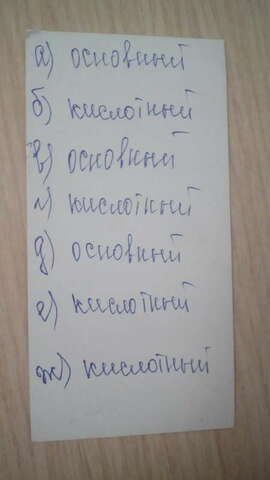 а) основний
б) кислотний
в) основний
г) кислотний
д) основний
е) кислотний
ж) кислотний